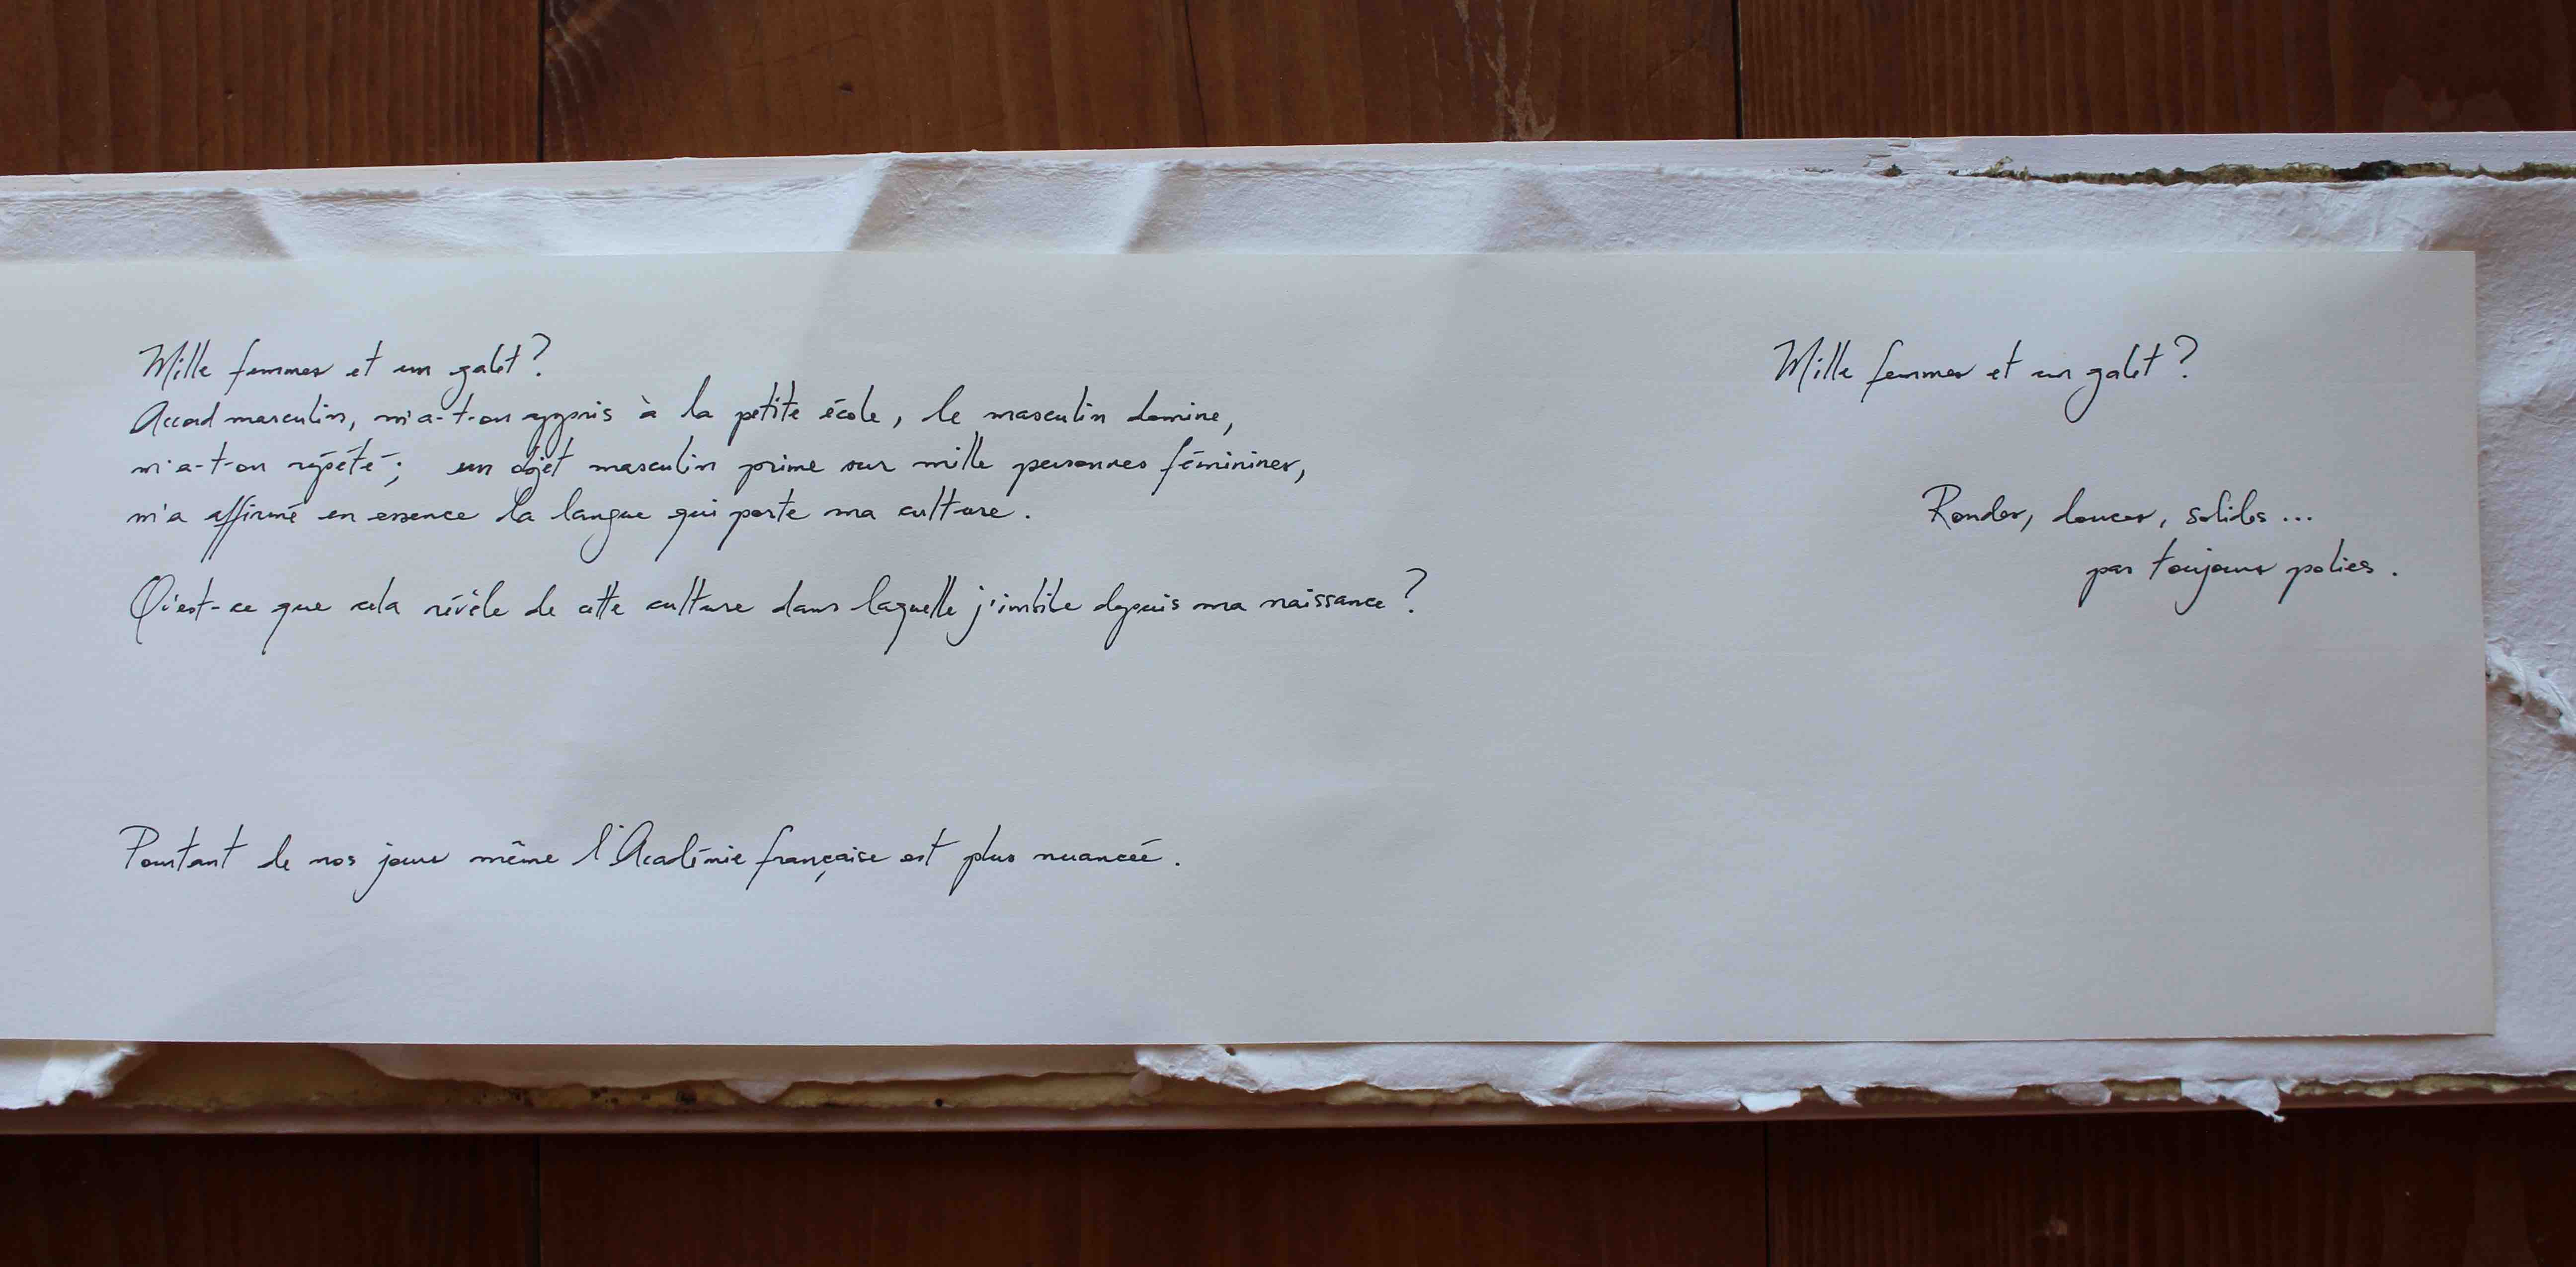 Mille femmes et un galet ?
Accord masculin, m'a-t-on appris à la petite école, le masculin domine,
m'a-t-on répété ; un objet masculin prime sur mille personnes féminines,
m'a affirmé en essence la langue qui porte ma culture.
Qu'est-ce que cela révèle de cette culture dans laquelle j'imbibe depuis ma naissance ?
Pourtant de nos jours même l'Académie française est plus nuancée.
Mille femmes et un galet ?
Rondes, douces, solides ...
pas toujours polies.